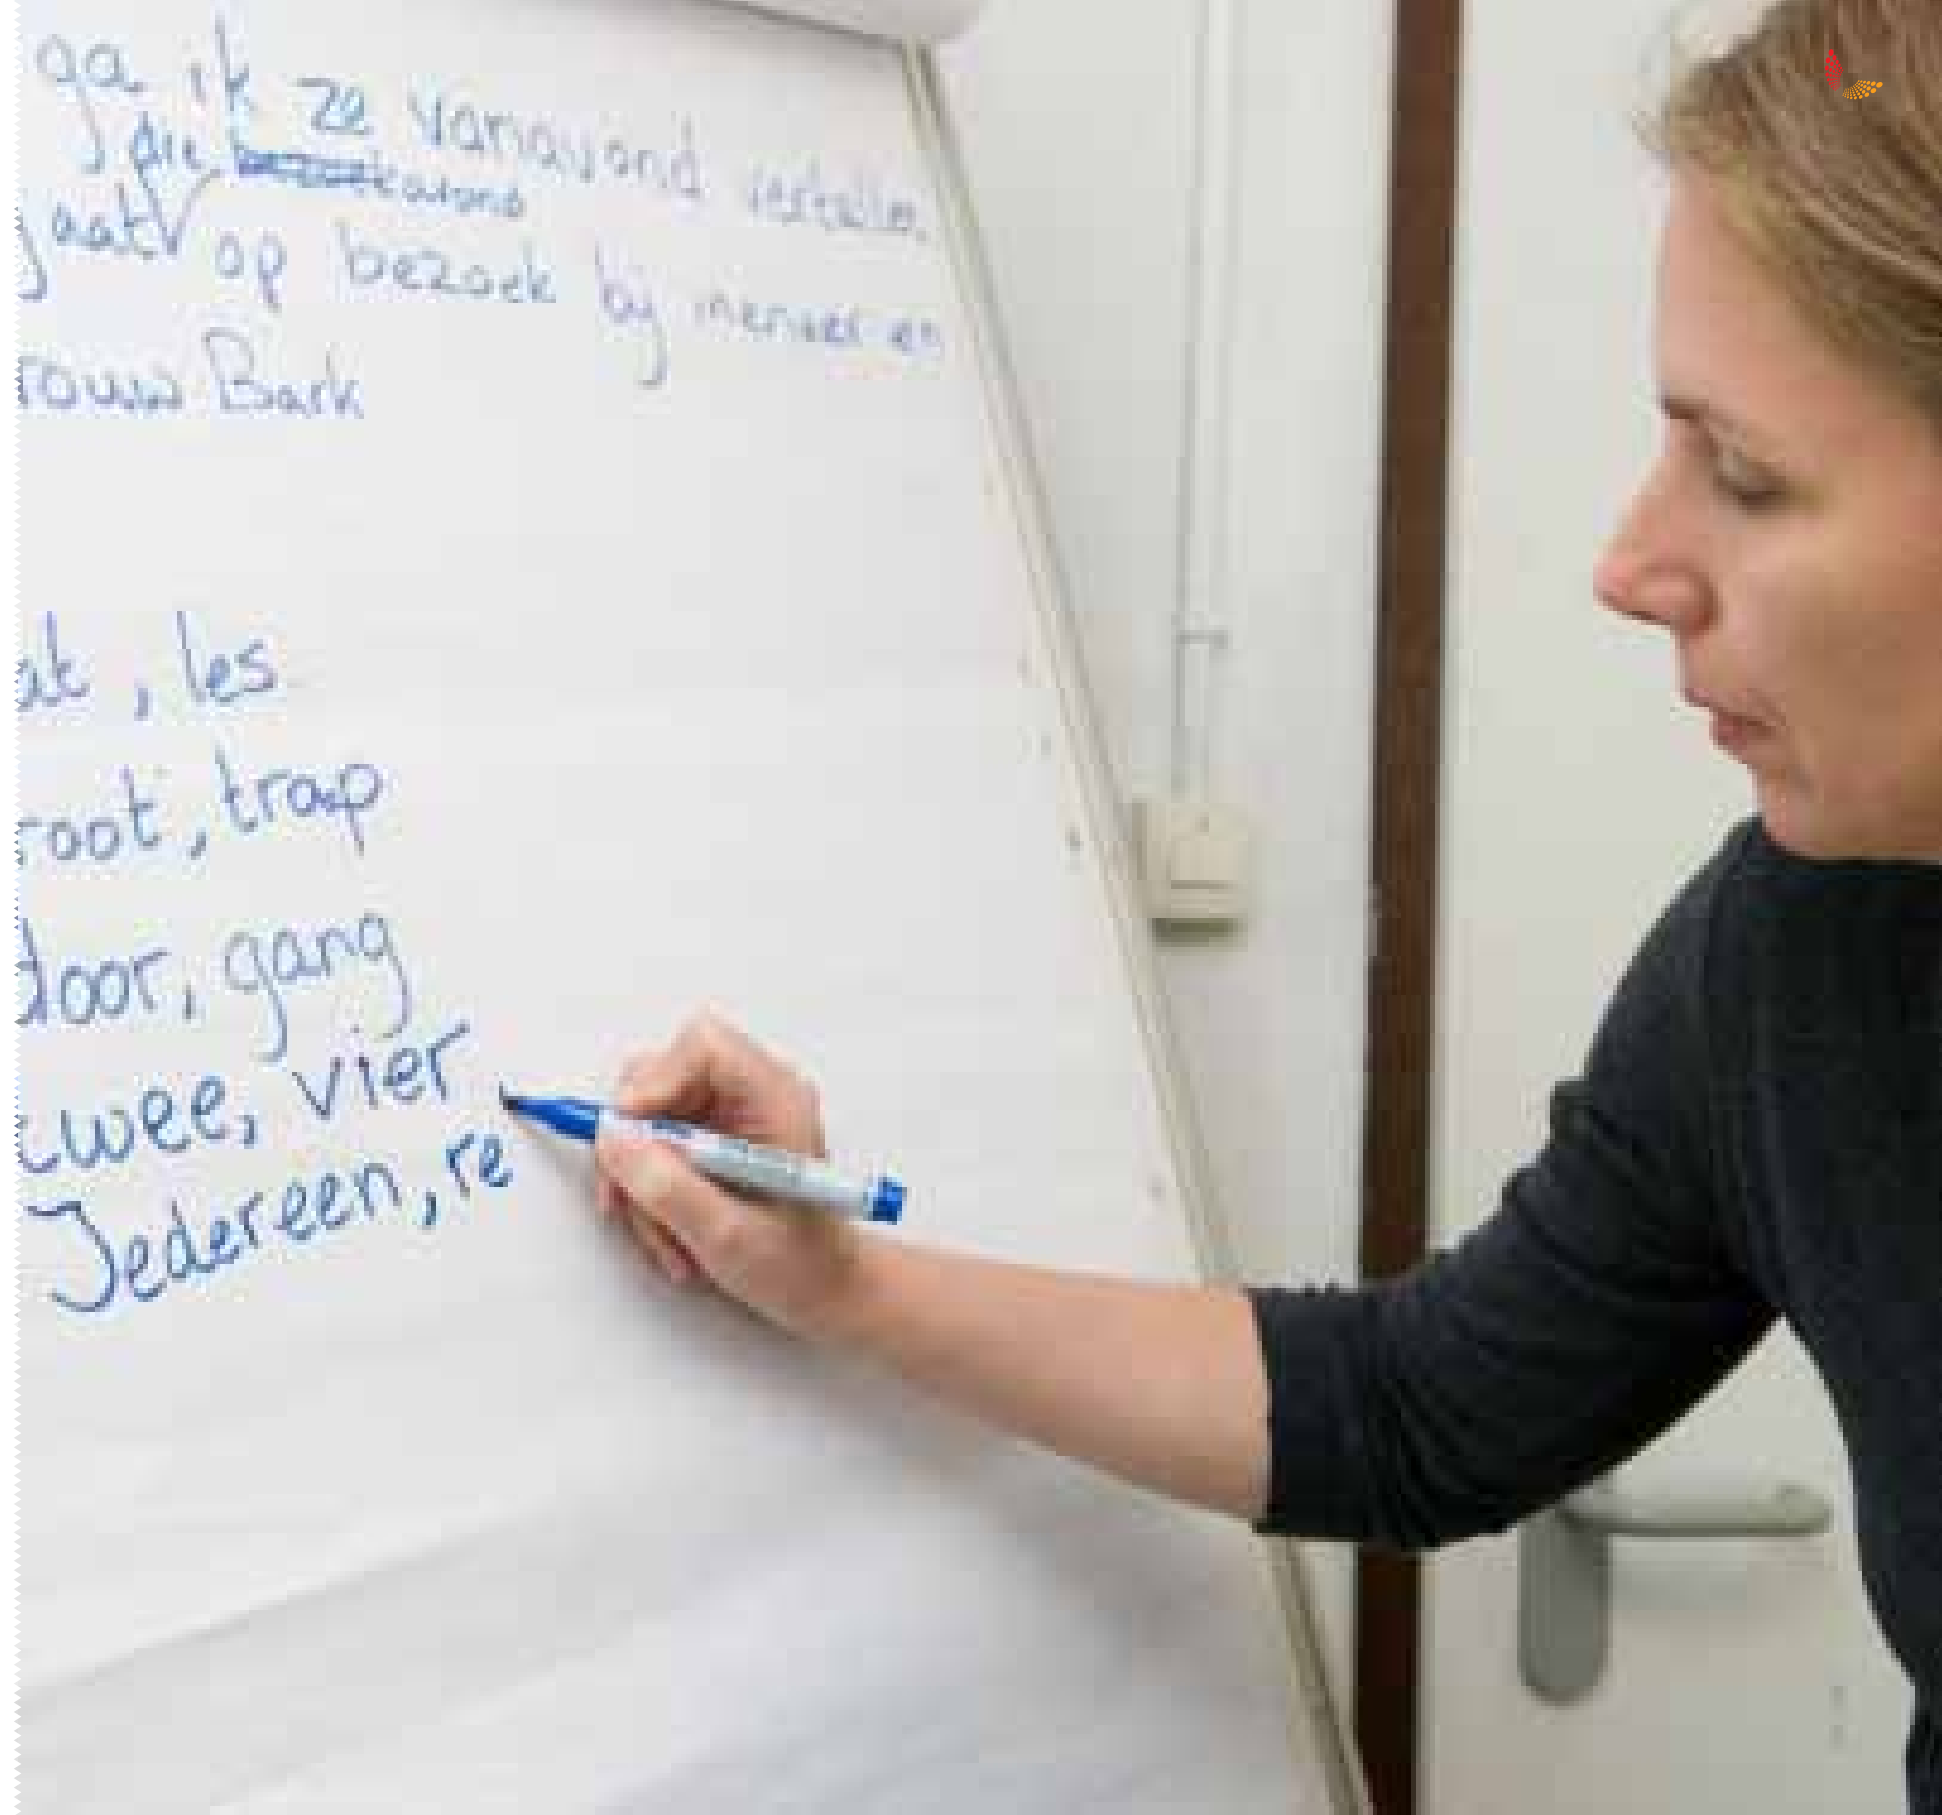 ga ik ze vanavond
die avond
gaat op bezoek bij en
rouw Bark
at, les
root, trap
door, gang
twee, vier
Iedereen, re